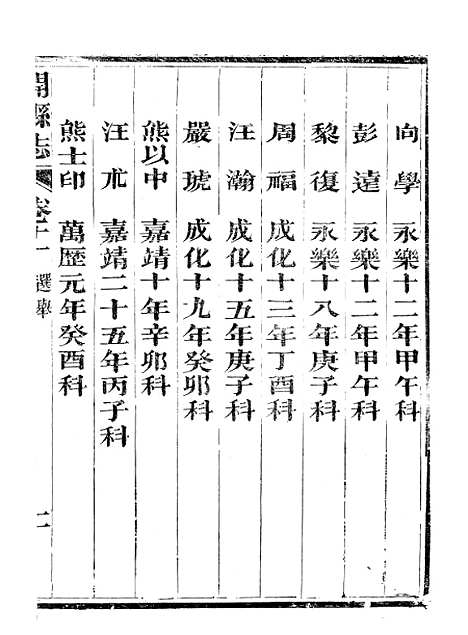 向學　永樂十二年甲午科
彭達　永樂十二年甲午科
黎復　永樂十八年庚子科
周福　成化十三年丁酉科
汪瀚　成化十五年庚子科
嚴琥　成化十九年癸卯科
熊以中　嘉靖十年辛卯科
汪朮　嘉靖二十五年丙子科
熊士印　萬歷元年癸酉科
開縣志　卷二十一　選舉　二